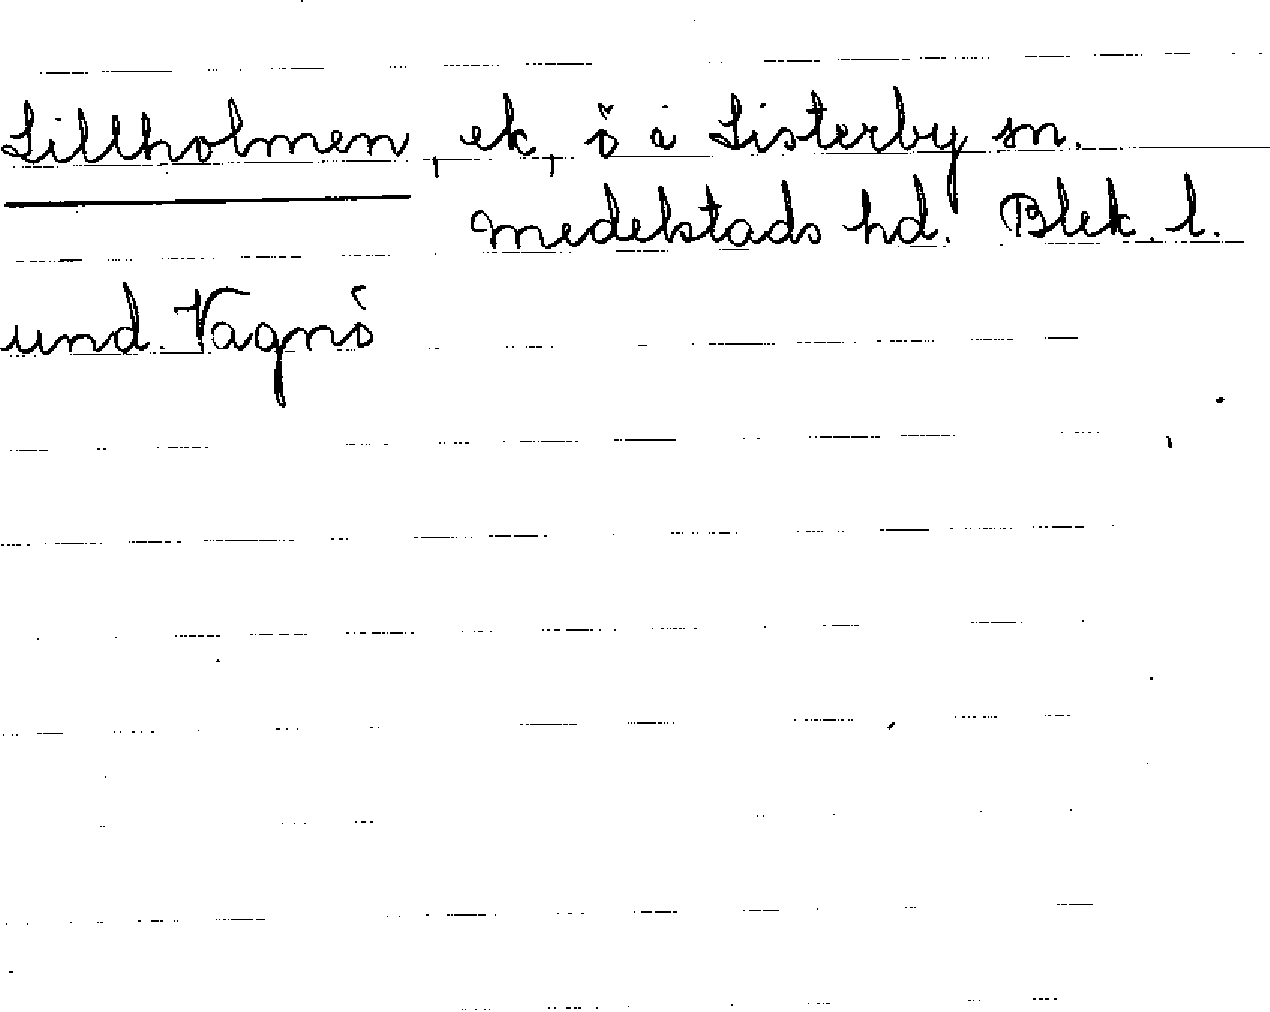 Lillholmen, ek, ö i Listerby sn.
Medelstads hd. Blek. l.
und. Vagnö